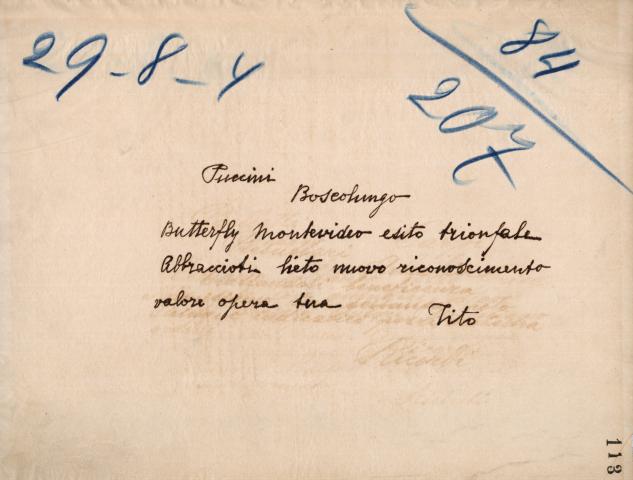 29-8-4
84
207
Puccini
Boscolungo
Butterfly Montevideo esito trionfale
Abbraccioti lieto nuovo riconoscimento
valore opera tua
Tito
Ricordi
113